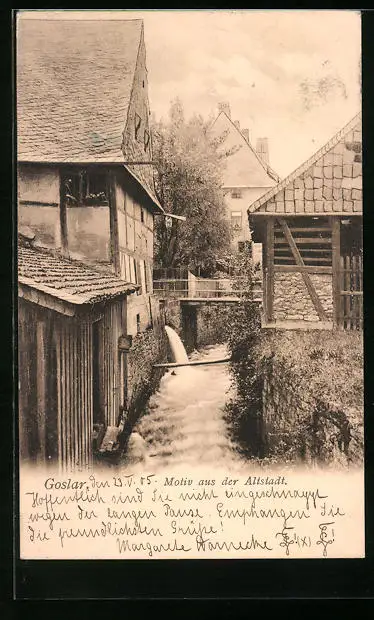 Goslar, den 23. V. 05. Motiv aus der Altstadt.
Hoffentlich sind sie nicht eingeschnappt
wegen der langen Pause. Empfangen Sie
die freundlichsten Grüße!
Margarete Warnecke